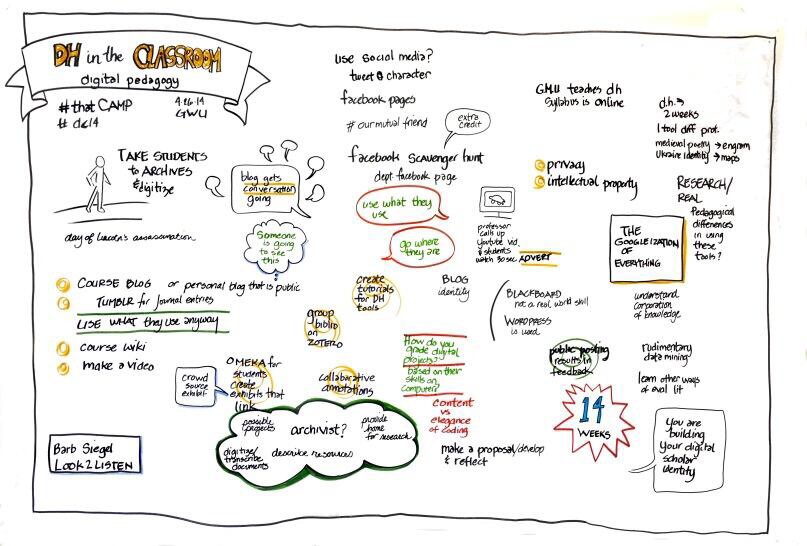 DH in the CLASSROOM
digital pedagogy
#that CAMP
4.26.14
GWU
TAKE STUDENTS
to ARCHIVES
& digitize
day of Lincoln's assassination
blog gets
conversation
going
Someone
is going
to see
this
COURSE BLOG or personal blog that is public
TUMBLR for Journal entries
USE WHAT they use anyway
course wiki
make a video
crowd
source
exhibit
OMEKA for
students
create
exhibits that
link
use social media?
tweet a character
facebook pages
# our mutual friend
extra
credit
facebook scavenger hunt
dept facebook page
use what they
use
go where
they are
professor
calls up
Youtube vid.
& students
watch 30 sec ADVERT
create
tutorials
for DH
tools
BLOG
identity
group
biblio
on
ZOTERO
collaborative
annotations
How do you
grade digital
projects?
based on their
skills on
computer
content
vs
elegance
of coding
make a proposal/develop
& reflect
possible
projects
archivist?
provide
home
for research
digitize/
transcribe
documents
describe resources
GMU teaches dh
Syllabus is online
privacy
intellectual property
d.h. →
2 weeks
1 tool diff prof.
medieval poetry → engram
Ukraine identity → maps
RESEARCH/
REAL
Pedagogical
differences
in using
these
tools?
THE
GOOGLEIZATION
OF
EVERYTHING
BLACKBOARD
not a real world skill
WORDPRESS
is used
understand
corporation
of knowledge
public posting
results in
feedback
rudimentary
data mining
learn other ways
of eval lit
14
WEEKS
You are
building
your digital
scholar
identity
Barb Siegel
LOOK2LISTEN